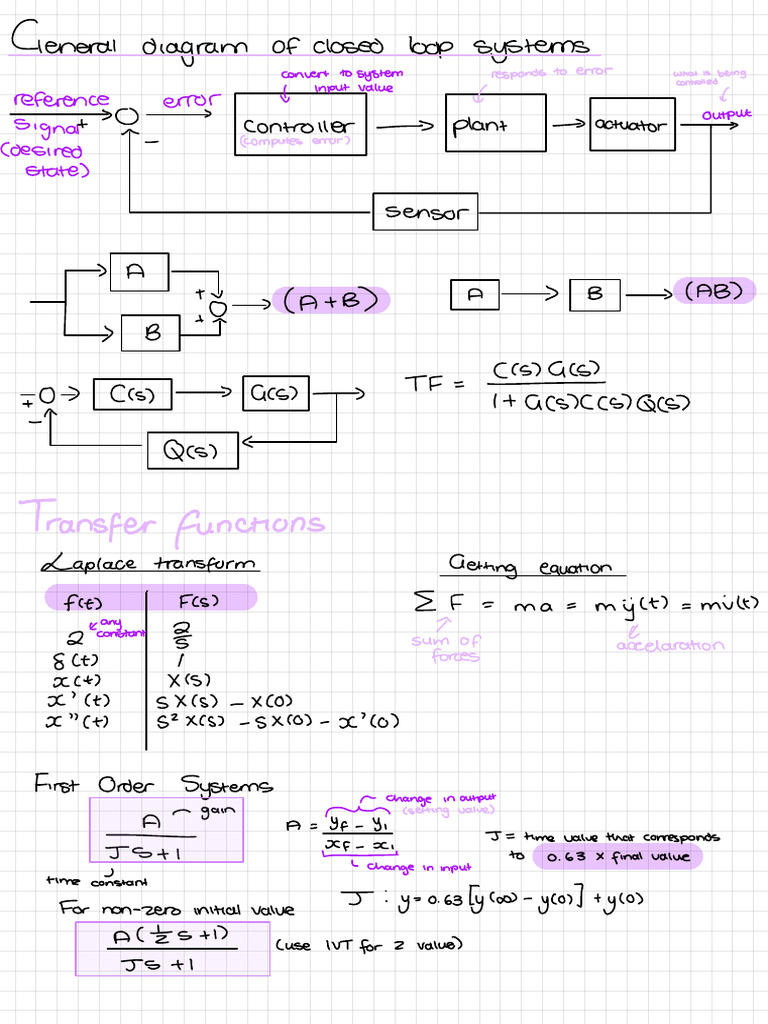 General diagram of closed loop systems
convert to system
input value
responds to error
what is being
controlled
reference
signal
(desired
state)
+
−
error
controller
(computes error)
plant
actuator
output
sensor
A
B
+
+
(A+B)
A
B
(AB)
+
−
C(s)
G(s)
Q(s)
TF = C(s)G(s) / 1+G(s)C(s)Q(s)
Transfer functions
Laplace transform
f(t) F(s)
2 any constant 2/s
δ(t) 1
x(t) X(s)
x'(t) sX(s) − x(0)
x''(t) s² X(s) − sX(0) − x'(0)
Getting equation
Σ F = ma = mÿ(t) = mv̇(t)
sum of
forces
accelaration
First Order Systems
A / Js+1
gain
time constant
A = yf − y1 / xf − x1
change in output
(setting value)
change in input
J = time value that corresponds
to 0.63 x final value
J : y = 0.63 [y(∞) − y(0)] + y(0)
For non-zero initial value
A(1/z s+1) / Js +1
(use IVT for z value)